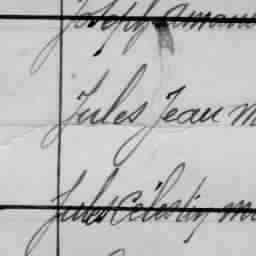 Joseph Amand
Jules Jean M
Jules Célestin M